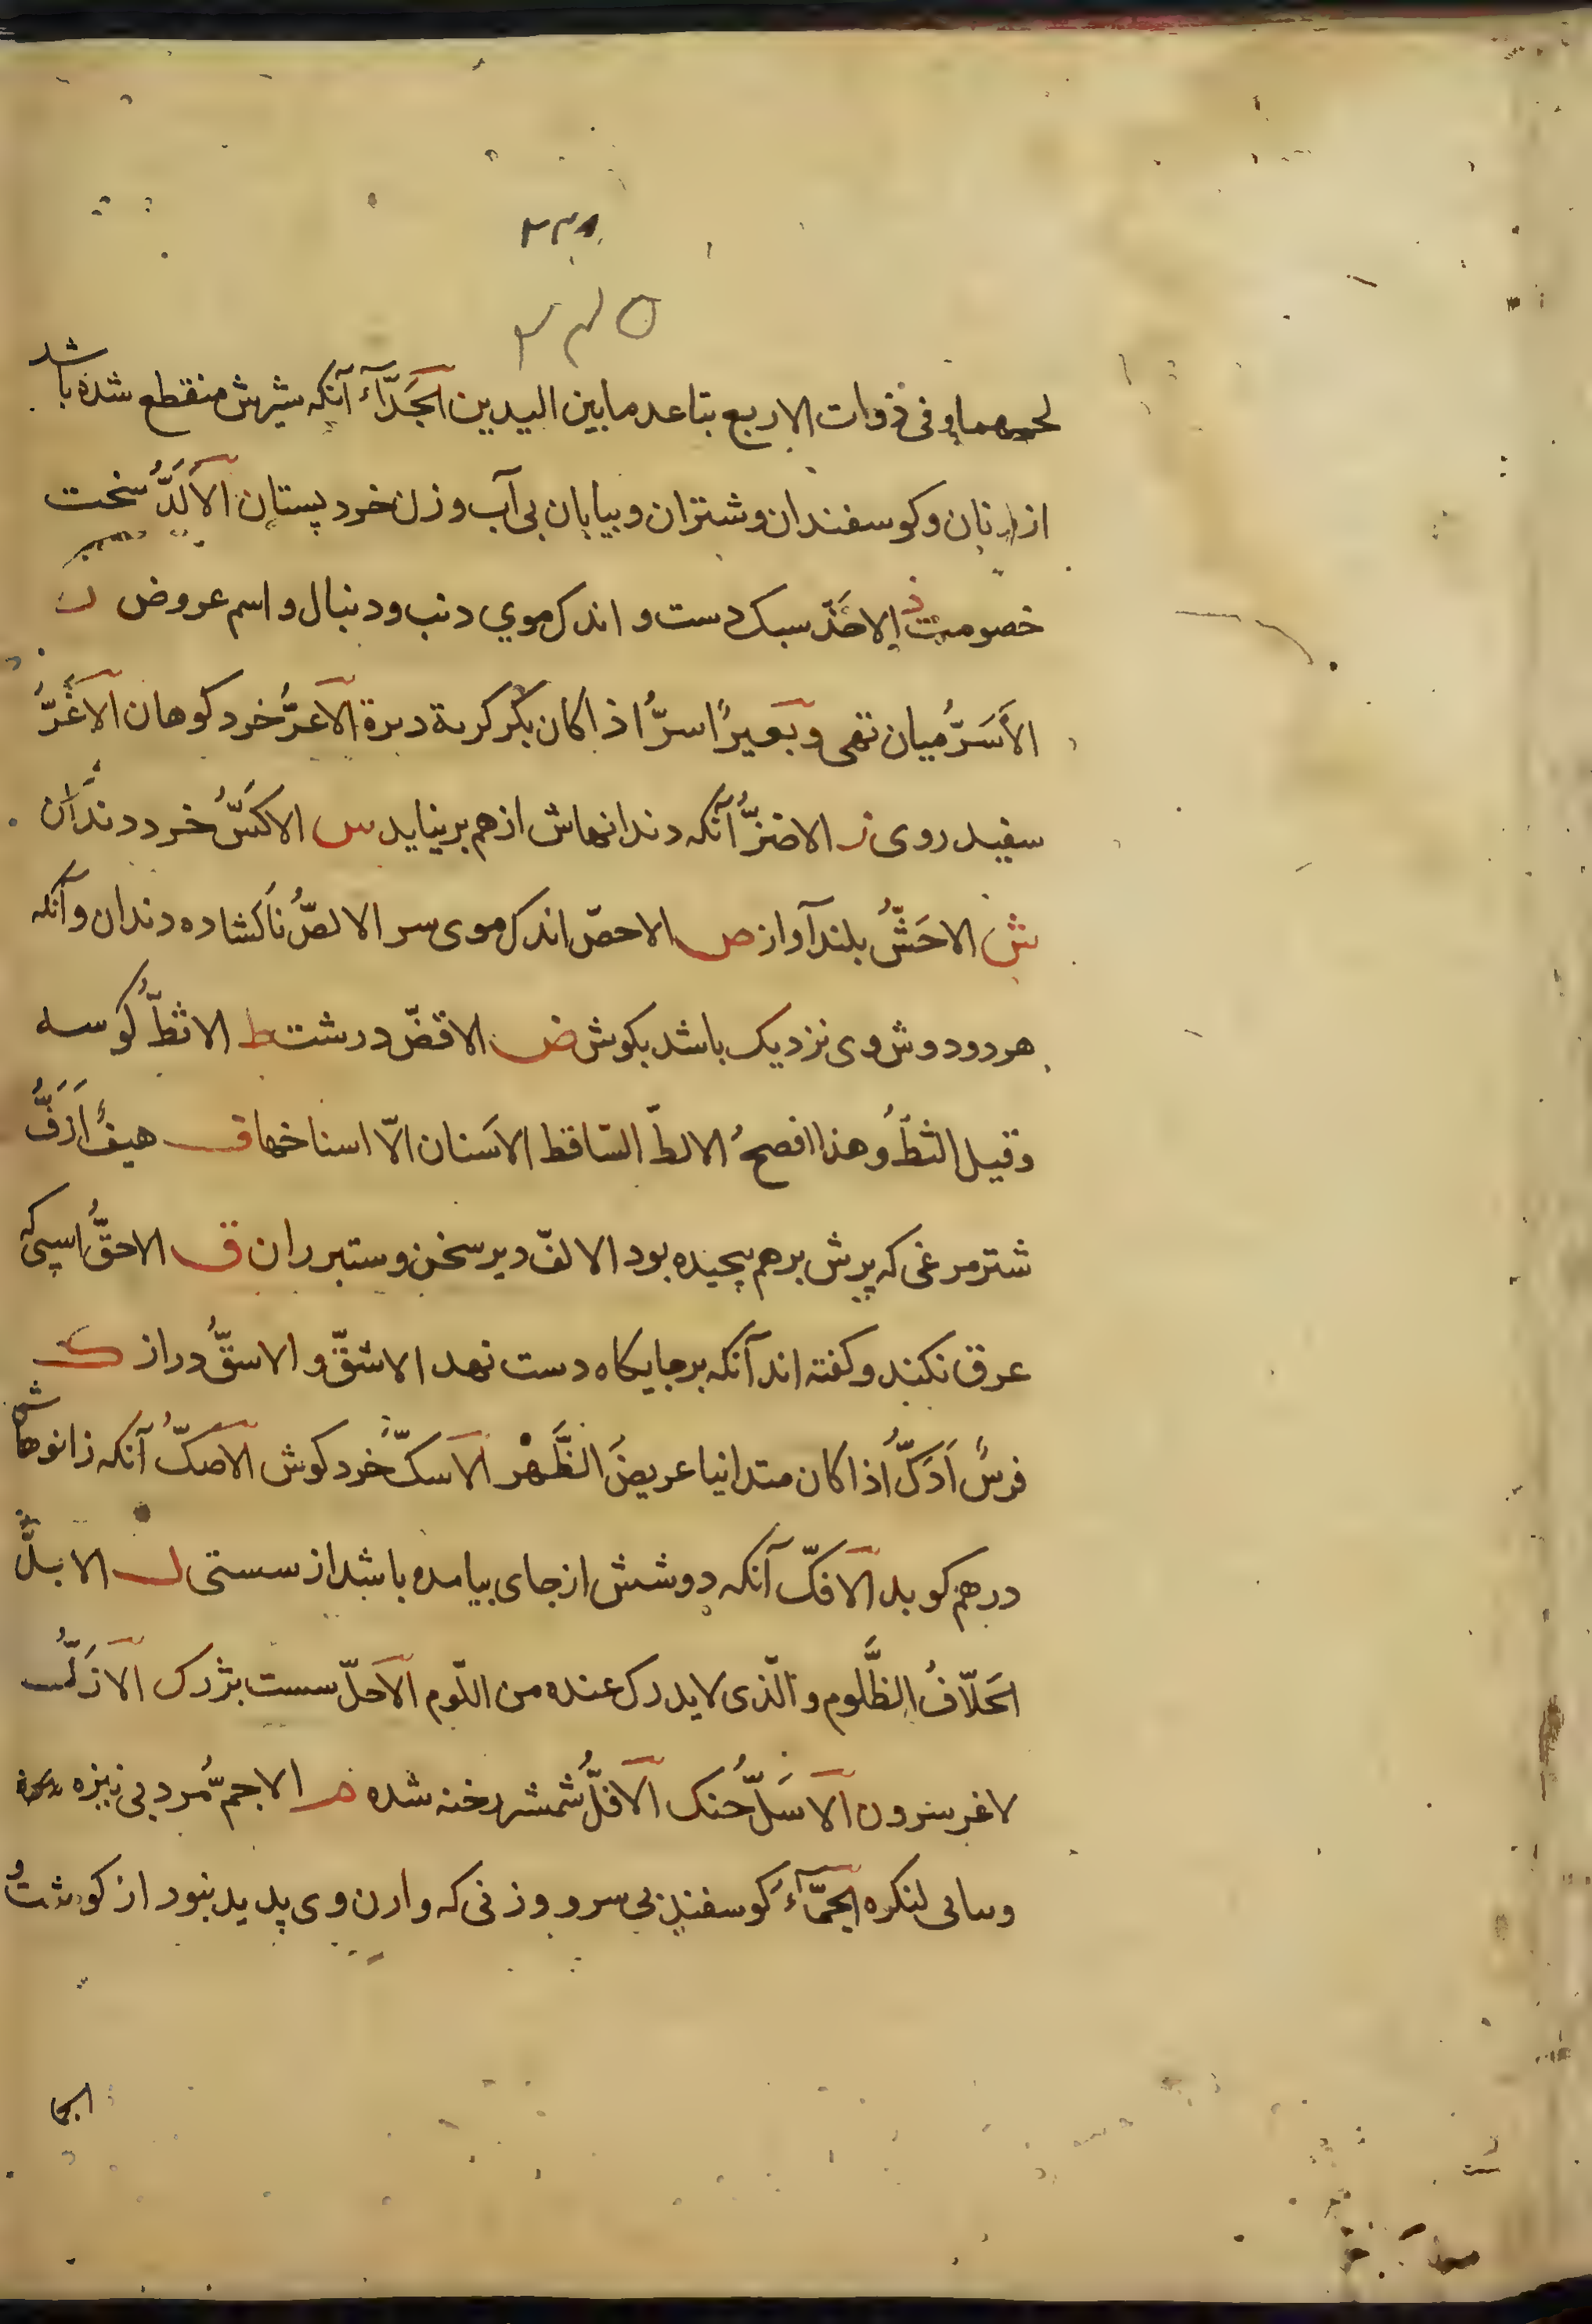 ۲۳۸
۲۳۵
لحمهما و فی ذوات الاربع تباعد ما بین الیدین الجَدّآءُ آنکه شیرش منقطع شده باشد
از زنان و کوسفندان و شتران و بیابان بی آب و زن خرد پستان الاَلَدُّ سخت
خصومت ذ الاحَذّ سبک دست و اندک موی دنب و دنبال و اسم عروض ر
الاَسَرُّ میان تهی و بعیرٌ اسرُّ اذا کان بکرکرته دبرة الاعرُّ خرد کوهان الاَغَرُّ
سفید روی ز الاضزُّ آنکه دندانهاش از هم برنیاید س الاکَسُّ خرد دندان
ش الاجَشُّ بلند آواز ص الاحصّ اندک موی سر الالصُّ ناکشاده دندان و آنکه
هر دو دوش وی نزدیک باشد بکوش ض الاقضّ درشت ط الاثطُّ کوسه
وقیل الثطُّ وهذا افصحُ الالطّ السّاقط الاَسنان الاّ اسناخها ف هیفٌ اَزَفُّ
شترمرغی که پرش برهم پیچیده بود الالفّ دیر سخن و ستبر ران ق الاحقُّ اسپی که
عرق نکند و کفته اند آنکه بر جایکاه دست نهد الاشقّ و الاسقُّ دراز ک
فرسٌ اَدَکُّ اذا کان متدانیا عریضُ الظَّهْر الاَسکّ خرد کوش الاَصکُّ آنکه زانوهاش
درهم کوبد الاَفکّ آنکه دوشش از جای بیامده باشد از سستی ل الابلُّ
الحَلّافُ الظَّلوم و الّذی لا یدرک عنده من اللّوم الاَحلّ سست بژرک الاَزَلُّ
لاغر سرون الاَشَلُّ خنک الاَفلُّ شمشیر رخنه شده م الاجمُّ مرد بی نیزه
و بی کنکره الجَمّآءُ کوسفند بی سرو و زنی که وارن وی پدید نبود از کوشت و
الجما